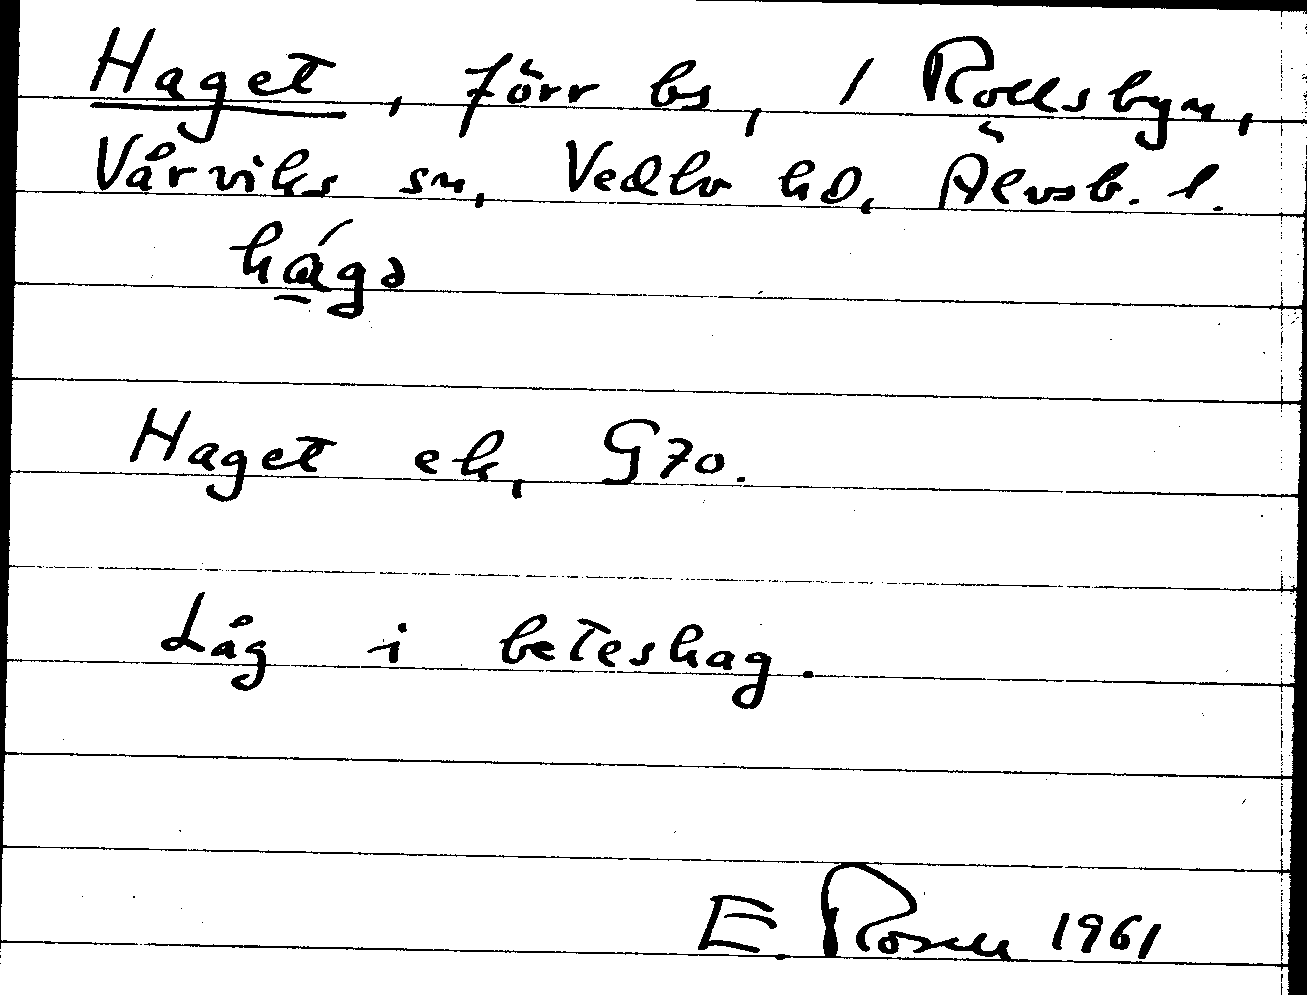 Haget, förr bs, 1 Rollsbyn,
Vårviks sn, Vedbo hd, Älvsb. l.
hága
Haget ek, G70.
Låg i beteshag.
E. Rosen 1961